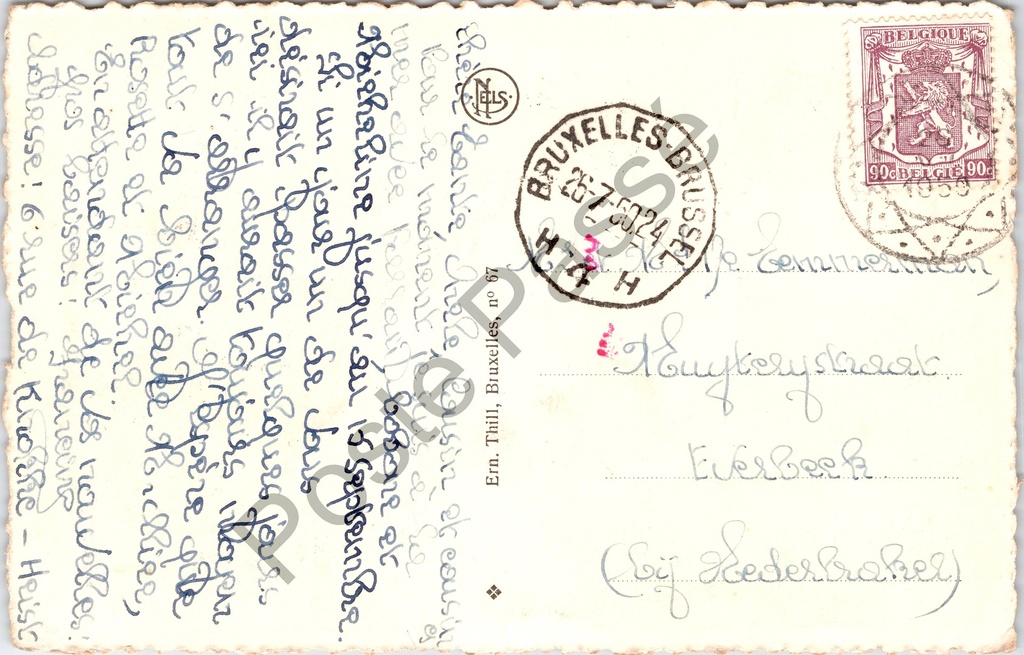 Chère tante, oncle, cousin et cousine
Pour le moment je suis à la
mer avec Bobone et
Micheline jusqu'au 15 septembre.
Si un jour un de vous
désirait passer quelques jours
ici il y aurait toujours moyen
de s'arranger. J'espère que
tout va bien avec
Rosette et Michel.
En attendant de vos nouvelles.
Nos baisers
Adresse: 6 rue de Knocke - Heist
NELS
Ern. Thill, Bruxelles, nº 67
BRUXELLES-BRUSSEL
26-7-50 24
H 4 H
BELGIQUE
90c BELGIË 90c
1950
Temmerman
Muyterystraat
Everbeek
(bij Nederbrakel)
Poste Passe